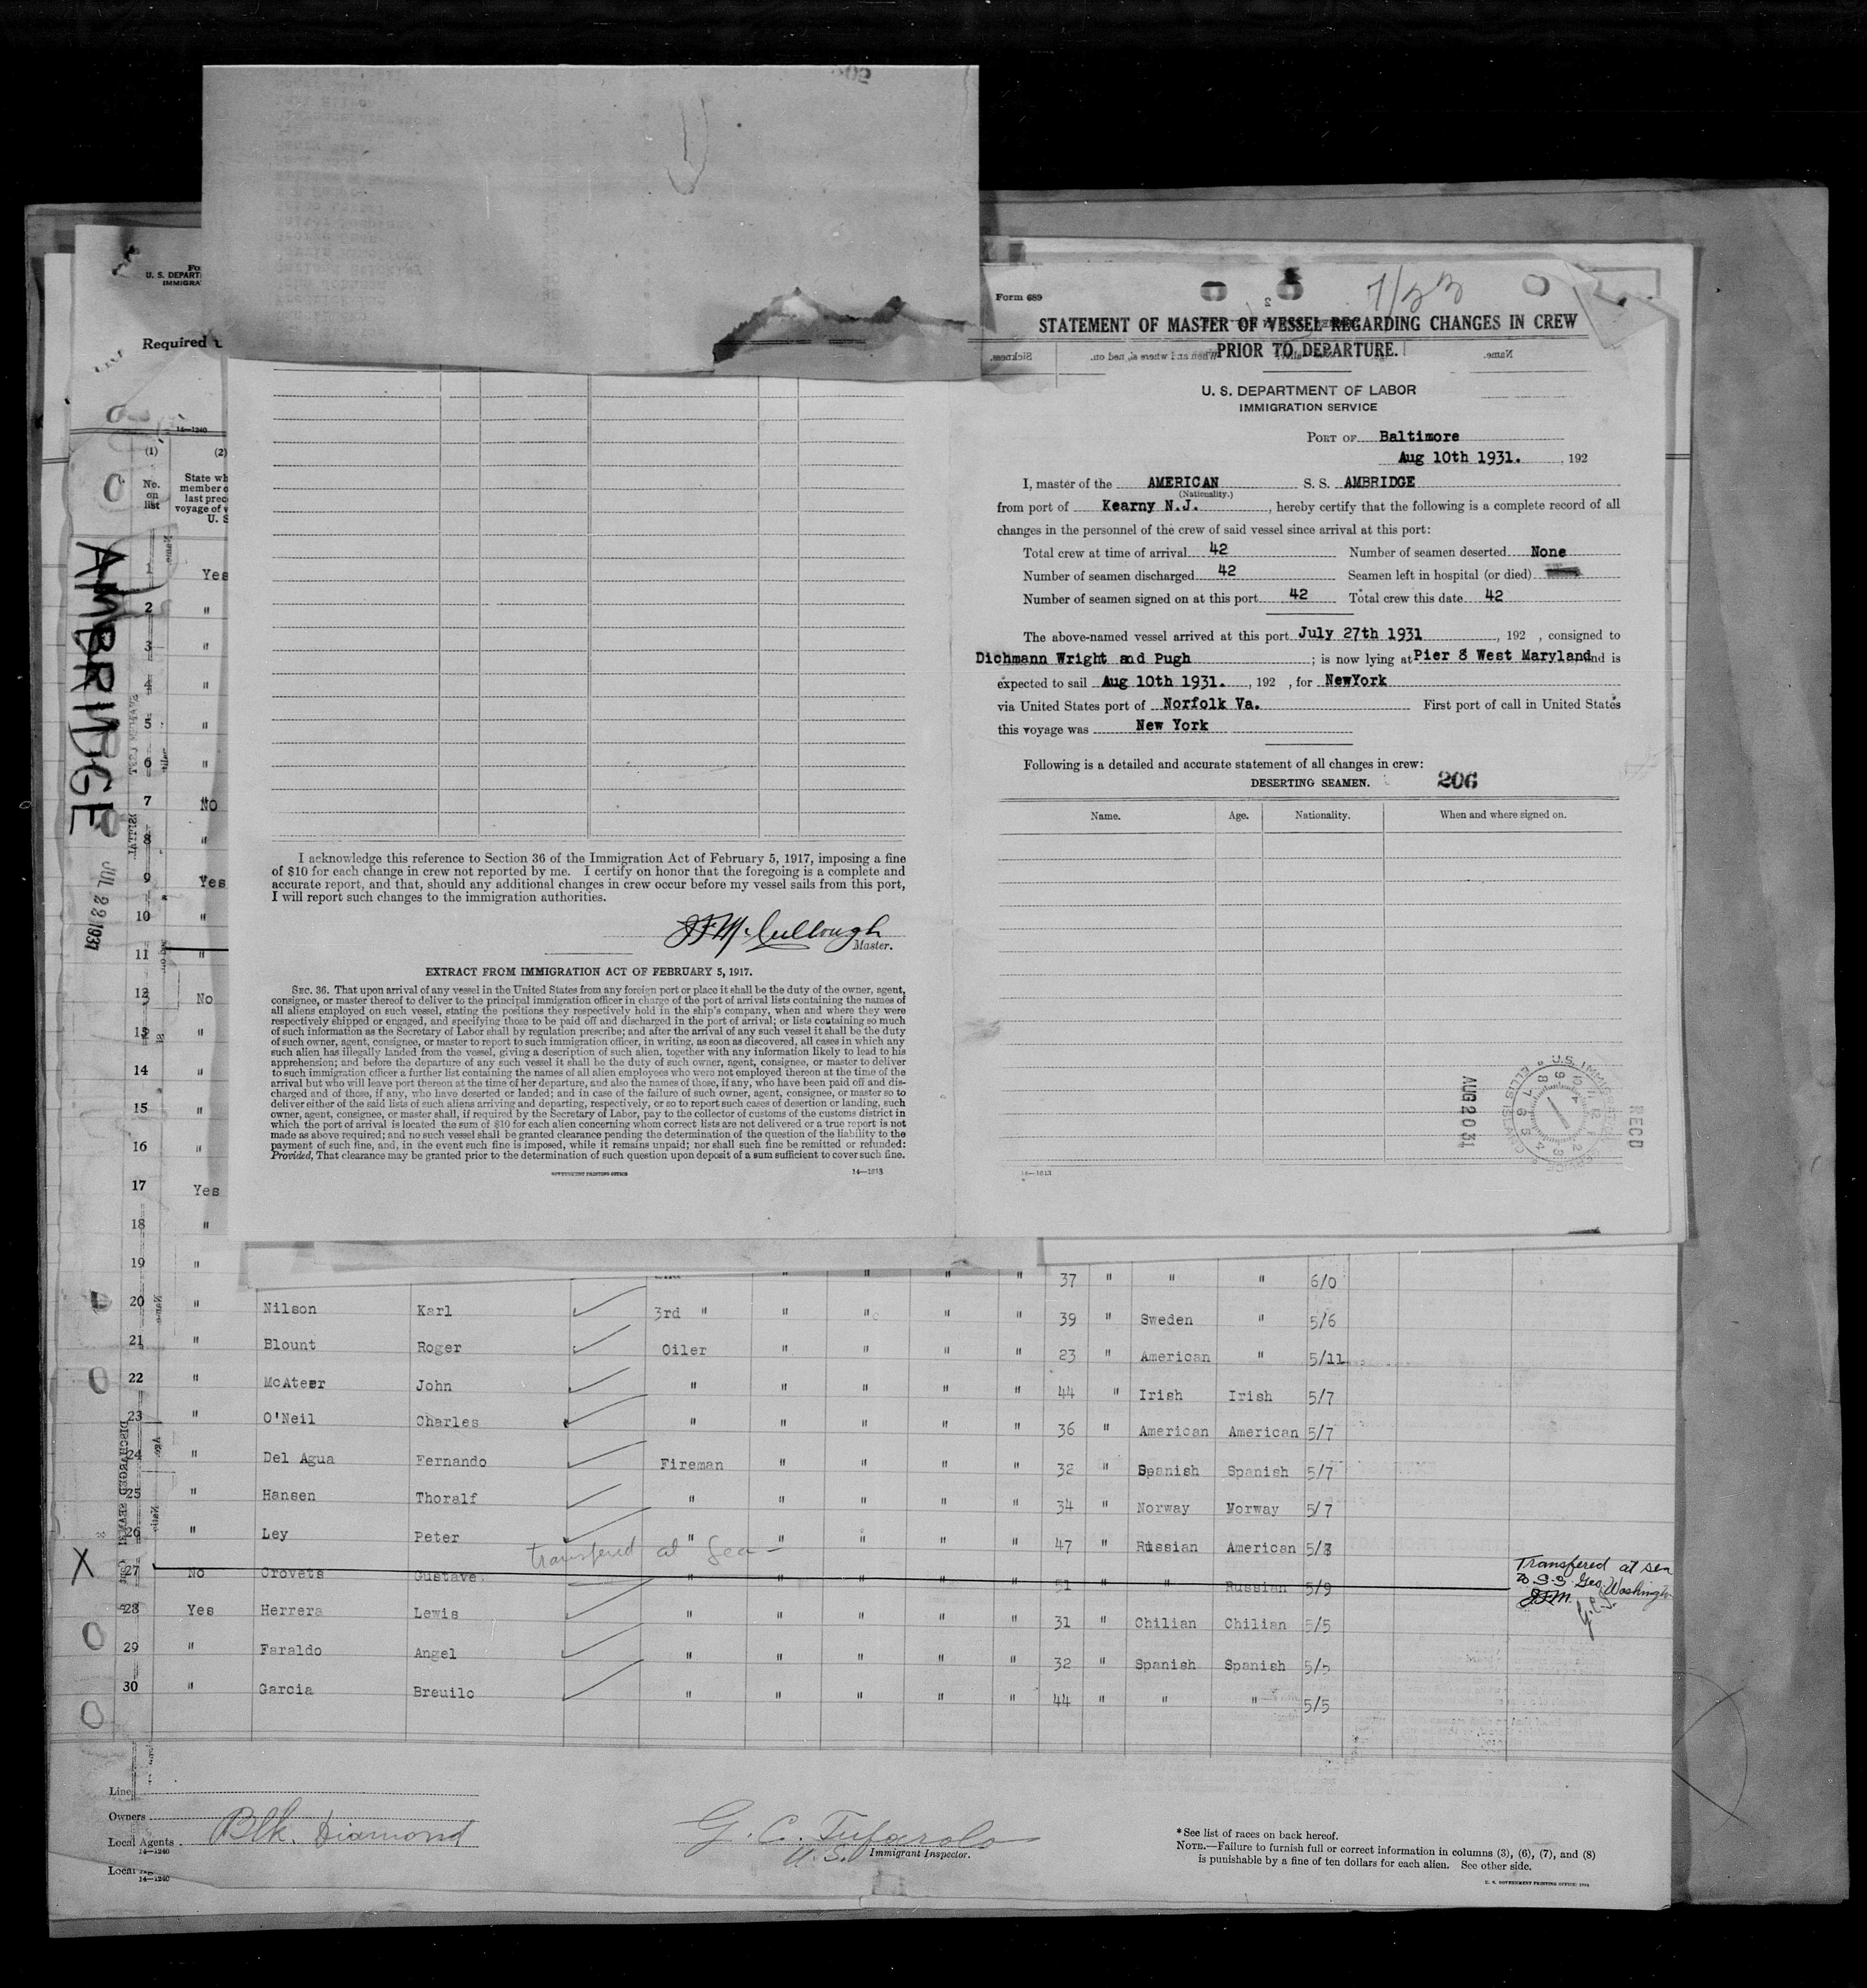 Form 689
STATEMENT OF MASTER OF VESSEL REGARDING CHANGES IN CREW
PRIOR TO DEPARTURE.
U. S. DEPARTMENT OF LABOR
IMMIGRATION SERVICE
PORT OF Baltimore
Aug 10th 1931. , 192
I, master of the AMERICAN S. S. AMBRIDGE
(Nationality.)
from port of Kearny N.J. , hereby certify that the following is a complete record of all
changes in the personnel of the crew of said vessel since arrival at this port:
Total crew at time of arrival 42 Number of seamen deserted None
Number of seamen discharged 42 Seamen left in hospital (or died)
Number of seamen signed on at this port 42 Total crew this date 42
The above-named vessel arrived at this port July 27th 1931 , 192 , consigned to
Dichmann Wright and Pugh ; is now lying at Pier 8 West Maryland and is
expected to sail Aug 10th 1931. , 192 , for NewYork
via United States port of Norfolk Va. First port of call in United States
this voyage was New York
Following is a detailed and accurate statement of all changes in crew:
DESERTING SEAMEN. 206
Name. Age. Nationality. When and where signed on.
AUG 20 31
RECD
14—1613
I acknowledge this reference to Section 36 of the Immigration Act of February 5, 1917, imposing a fine
of $10 for each change in crew not reported by me. I certify on honor that the foregoing is a complete and
accurate report, and that, should any additional changes in crew occur before my vessel sails from this port,
I will report such changes to the immigration authorities.
J F McCullough
Master.
EXTRACT FROM IMMIGRATION ACT OF FEBRUARY 5, 1917.
SEC. 36. That upon arrival of any vessel in the United States from any foreign port or place it shall be the duty of the owner, agent,
consignee, or master thereof to deliver to the principal immigration officer in charge of the port of arrival lists containing the names of
all aliens employed on such vessel, stating the positions they respectively hold in the ship's company, when and where they were
respectively shipped or engaged, and specifying those to be paid off and discharged in the port of arrival; or lists containing so much
of such information as the Secretary of Labor shall by regulation prescribe; and after the arrival of any such vessel it shall be the duty
of such owner, agent, consignee, or master to report to such immigration officer, in writing, as soon as discovered, all cases in which any
such alien has illegally landed from the vessel, giving a description of such alien, together with any information likely to lead to his
apprehension; and before the departure of any such vessel it shall be the duty of such owner, agent, consignee, or master to deliver
to such immigration officer a further list containing the names of all alien employees who were not employed thereon at the time of the
arrival but who will leave port thereon at the time of her departure, and also the names of those, if any, who have been paid off and dis-
charged and of those, if any, who have deserted or landed; and in case of the failure of such owner, agent, consignee, or master so to
deliver either of the said lists of such aliens arriving and departing, respectively, or so to report such cases of desertion or landing, such
owner, agent, consignee, or master shall, if required by the Secretary of Labor, pay to the collector of customs of the customs district in
which the port of arrival is located the sum of $10 for each alien concerning whom correct lists are not delivered or a true report is not
made as above required; and no such vessel shall be granted clearance pending the determination of the question of the liability to the
payment of such fine, and, in the event such fine is imposed, while it remains unpaid; nor shall such fine be remitted or refunded:
Provided, That clearance may be granted prior to the determination of such question upon deposit of a sum sufficient to cover such fine.
GOVERNMENT PRINTING OFFICE 14—1613
U. S. DEPART
IMMIGRA
Required
14—1240
(1) (2)
No. on list
State wh
member o
last prec
voyage of v
U. S
AMBRIDGE
JUL 22 1931
1 Yes
2 "
3 "
4 "
5 "
6 "
7 No
8 "
9 Yes
10 "
11 "
12 No
13 "
14 "
15 "
16 "
17 Yes
18 "
19 " " " " " 37 " " " 6/0
20 " Nilson Karl 3rd " " " " " 39 " Sweden " 5/6
21 " Blount Roger Oiler " " " " 23 " American " 5/11
22 " McAteer John " " " " " 44 " Irish Irish 5/7
23 " O'Neil Charles " " " " " 36 " American American 5/7
24 " Del Agua Fernando Fireman " " " " 32 " Spanish Spanish 5/7
25 " Hansen Thoralf " " " " " 34 " Norway Norway 5/7
26 " Ley Peter " " " " " 47 " Russian American 5/8
transfered at Sea
X 27 No Crovets Gustave " " " " " 51 " " Russian 5/9 Transfered at sea
to S.S. Geo. Washington
J.F.M. G.C.T.
28 Yes Herrera Lewis " " " " " 31 " Chilian Chilian 5/5
29 " Faraldo Angel " " " " " 32 " Spanish Spanish 5/5
30 " Garcia Breuilo " " " " " 44 " " " 5/5
Line
Owners
Local Agents Blk. Diamond
14—1240
14—1240
G. C. Tufarolo
U.S. Immigrant Inspector.
*See list of races on back hereof.
NOTE.—Failure to furnish full or correct information in columns (3), (6), (7), and (8)
is punishable by a fine of ten dollars for each alien. See other side.